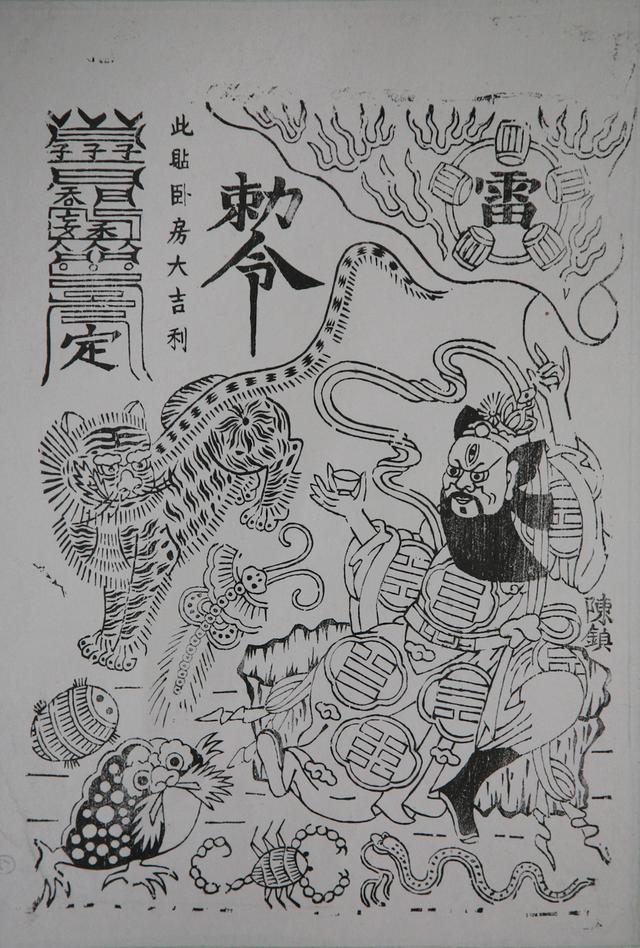 雷
勅令
此貼卧房大吉利
定
陳鎮